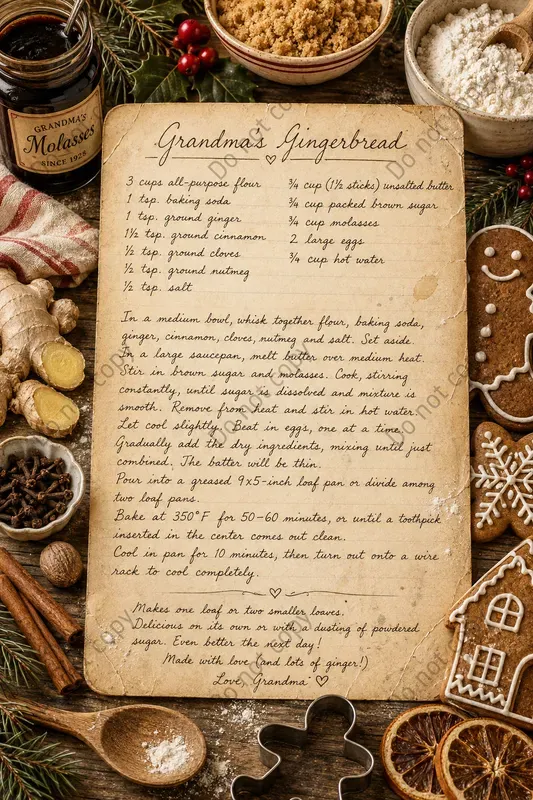 GRANDMA'S
Molasses
SINCE 1928
Grandma's Gingerbread
3 cups all-purpose flour
1 tsp. baking soda
1 tsp. ground ginger
1½ tsp. ground cinnamon
½ tsp. ground cloves
½ tsp. ground nutmeg
½ tsp. salt
¾ cup (1½ sticks) unsalted butter
¾ cup packed brown sugar
¾ cup molasses
2 large eggs
¾ cup hot water
In a medium bowl, whisk together flour, baking soda,
ginger, cinnamon, cloves, nutmeg and salt. Set aside.
In a large saucepan, melt butter over medium heat.
Stir in brown sugar and molasses. Cook, stirring
constantly, until sugar is dissolved and mixture is
smooth. Remove from heat and stir in hot water.
Let cool slightly. Beat in eggs, one at a time.
Gradually add the dry ingredients, mixing until just
combined. The batter will be thin.
Pour into a greased 9x5-inch loaf pan or divide among
two loaf pans.
Bake at 350°F for 50-60 minutes, or until a toothpick
inserted in the center comes out clean.
Cool in pan for 10 minutes, then turn out onto a wire
rack to cool completely.
Makes one loaf or two smaller loaves.
Delicious on its own or with a dusting of powdered
sugar. Even better the next day!
Made with love (and lots of ginger!)
Love, Grandma ♡
Do not copy
Do not copy
Do not copy
Do not copy
Do not copy
Do not copy